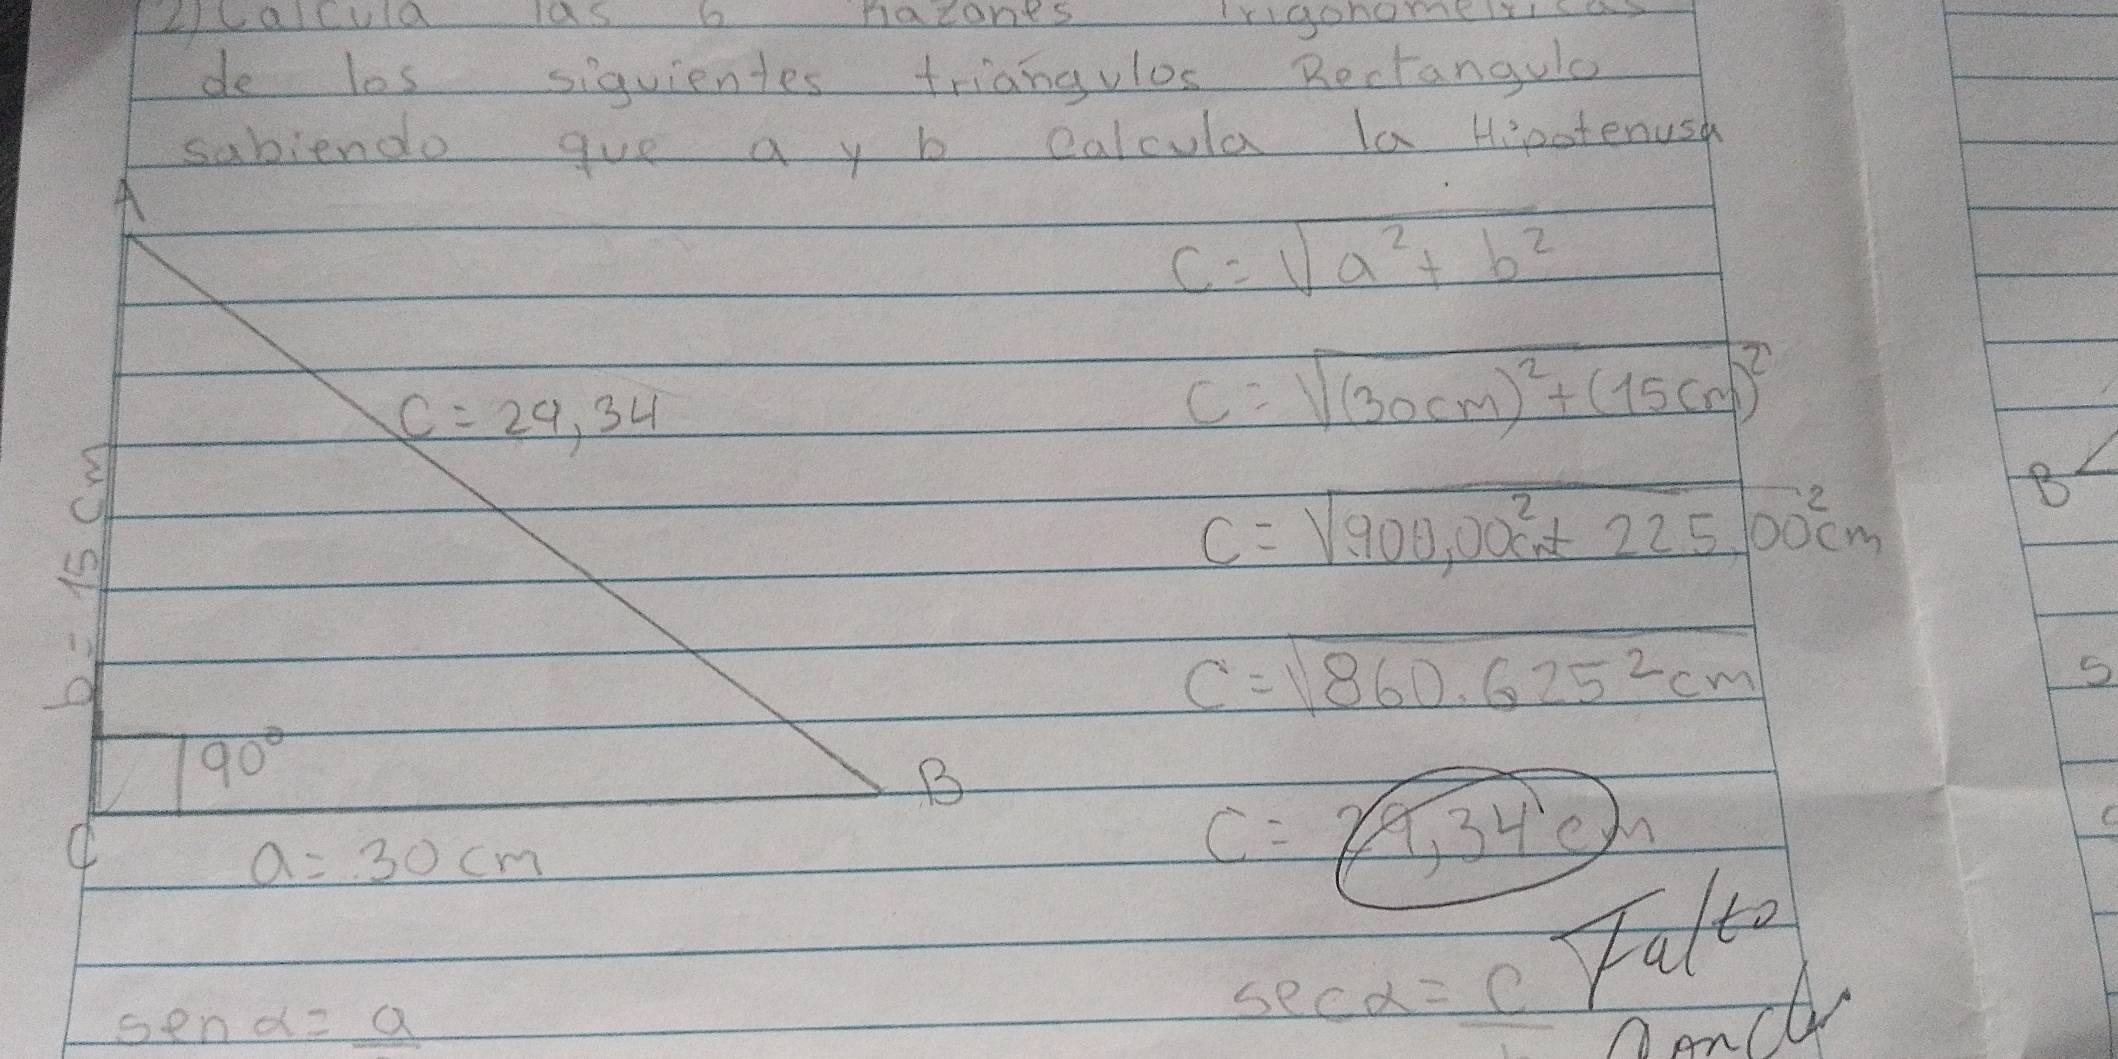 2) Calcula las 6 Razones Trigonometricas
de los siguientes triángulos Rectangulo
sabiendo que a y b calcula la Hipotenusa
A
C = √a² + b²
C = 29,34
C = √(30cm)² + (15cm)²
b = 15 cm
B
C = √900,00cm² + 225,00²cm
C = √860.625²cm
S
90°
B
C = 29,34 cm
C
a = 30 cm
Falto
sec α = C
sen α = a